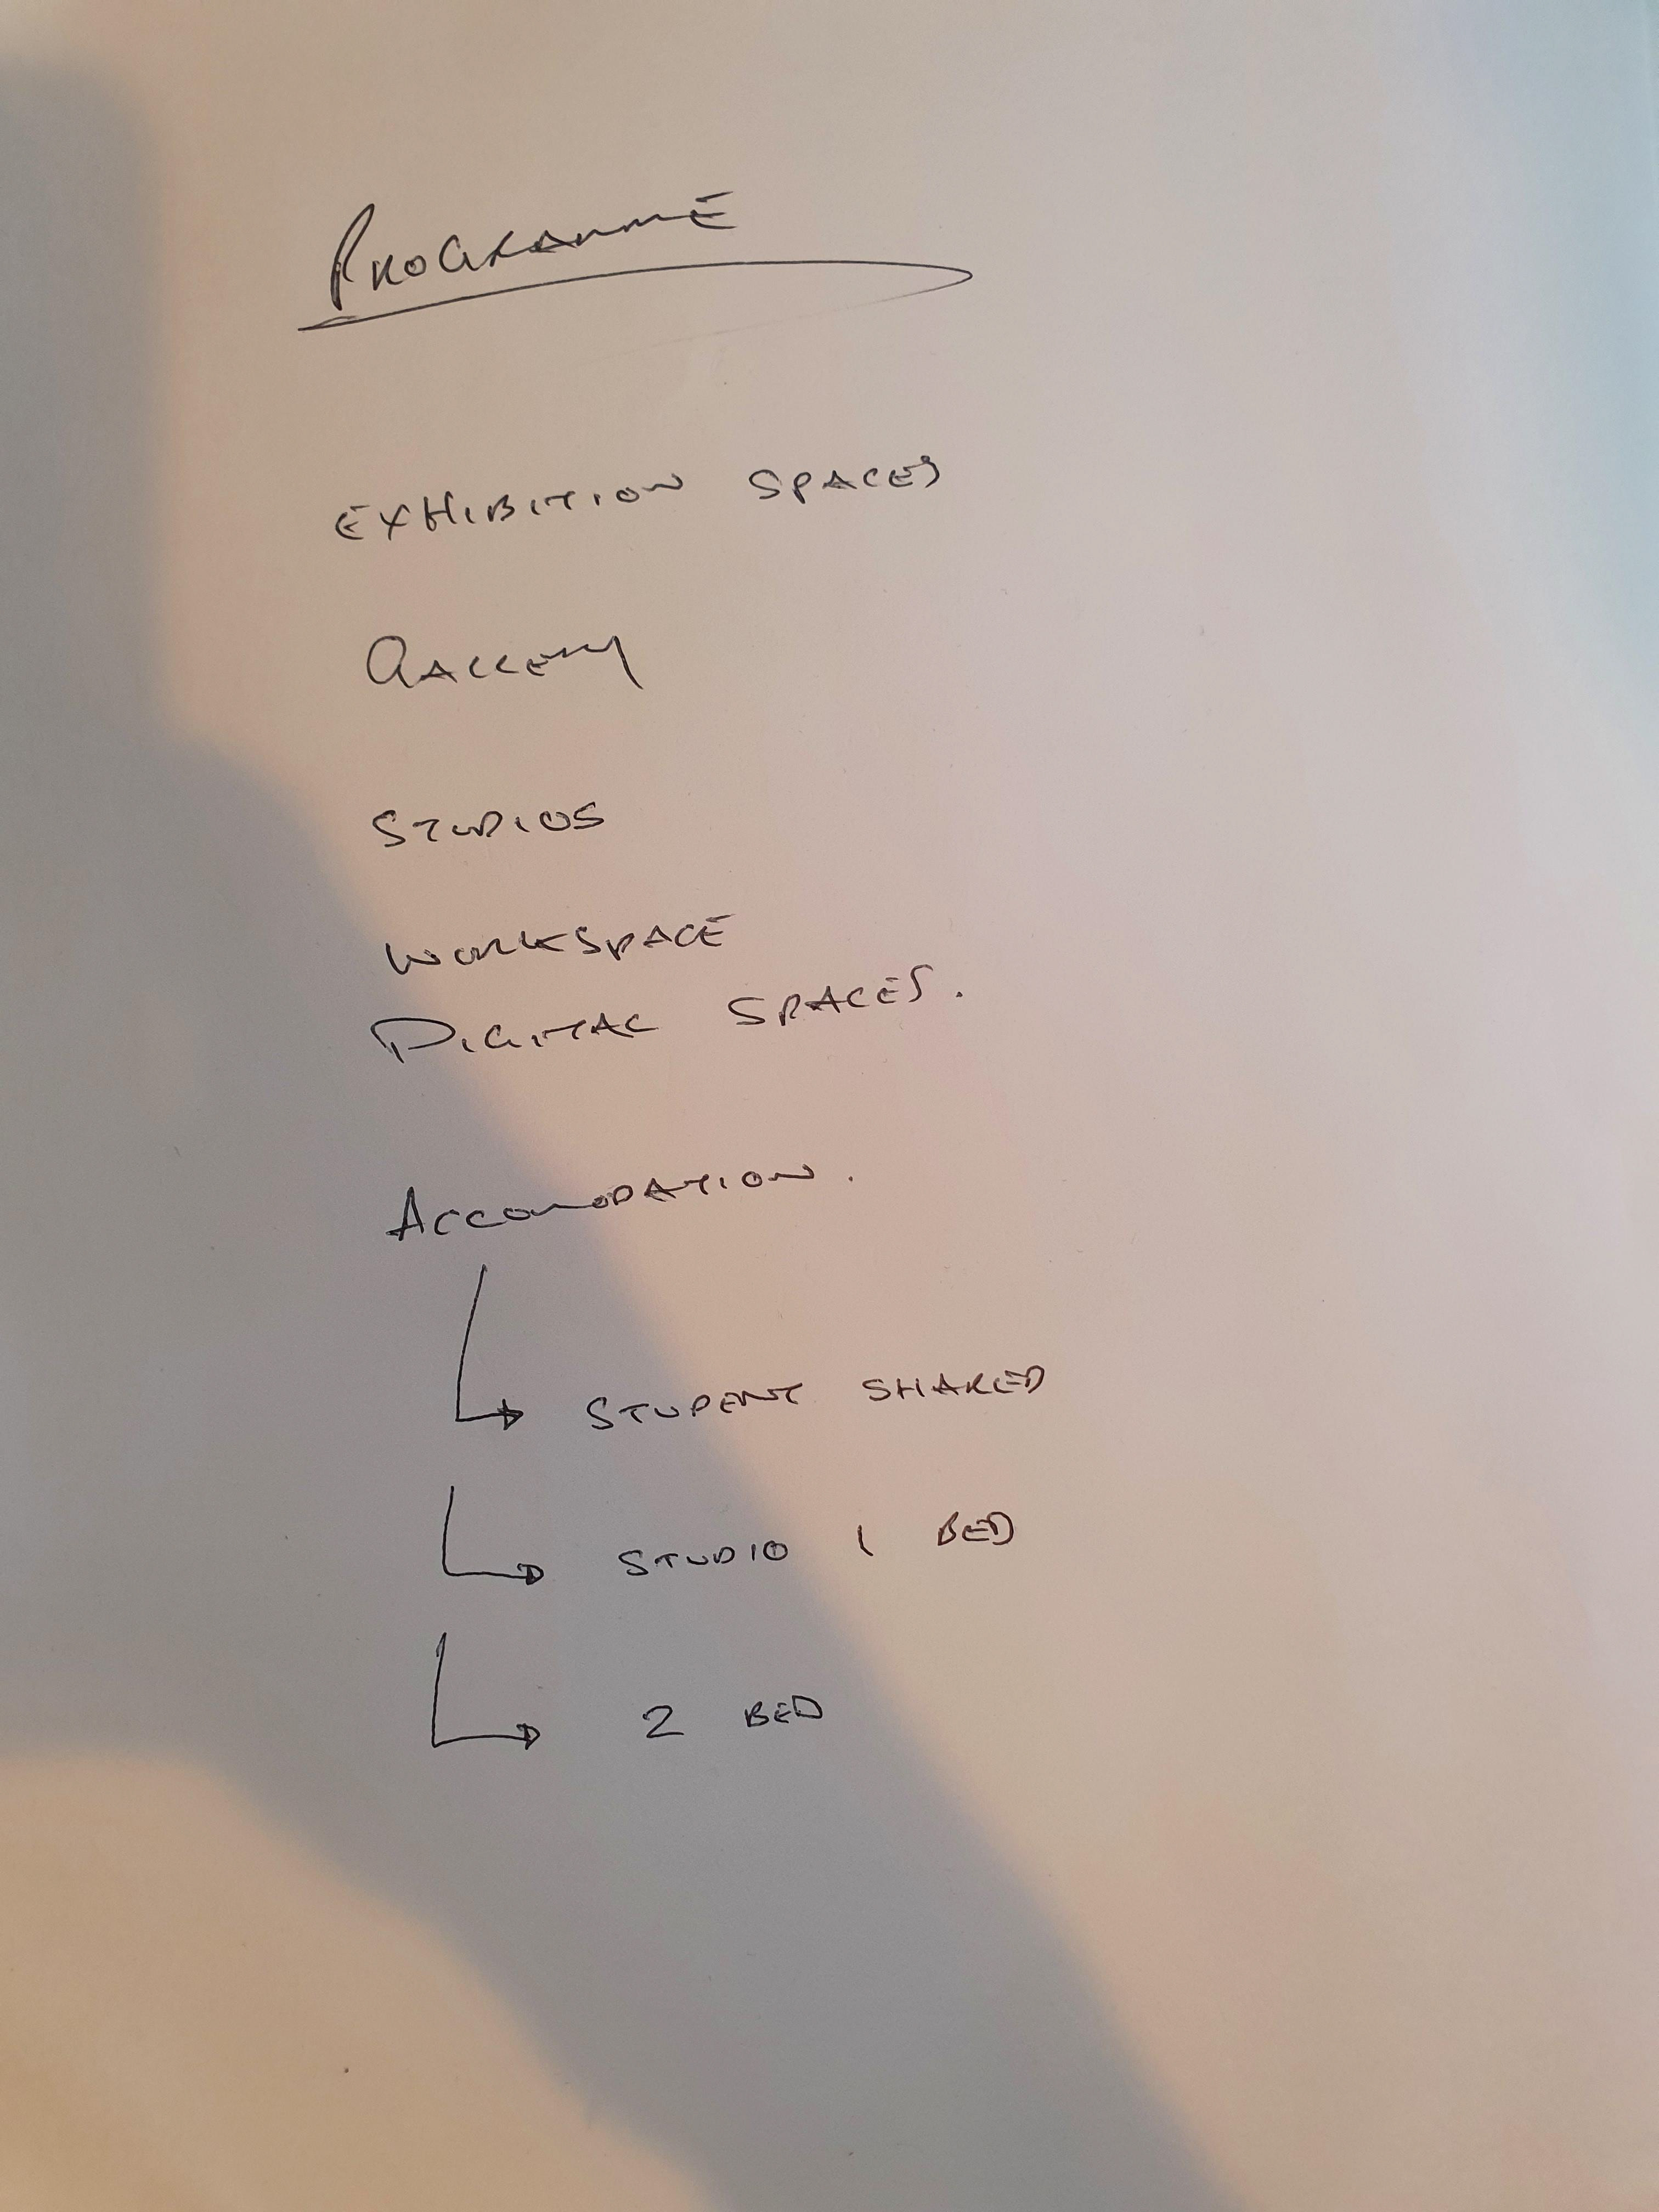 PROGRAMME
EXHIBITION SPACES
GALLERY
STUDIOS
WORKSPACE
DIGITAL SPACES.
ACCOMODATION.
STUDENT SHARED
STUDIO 1 BED
2 BED